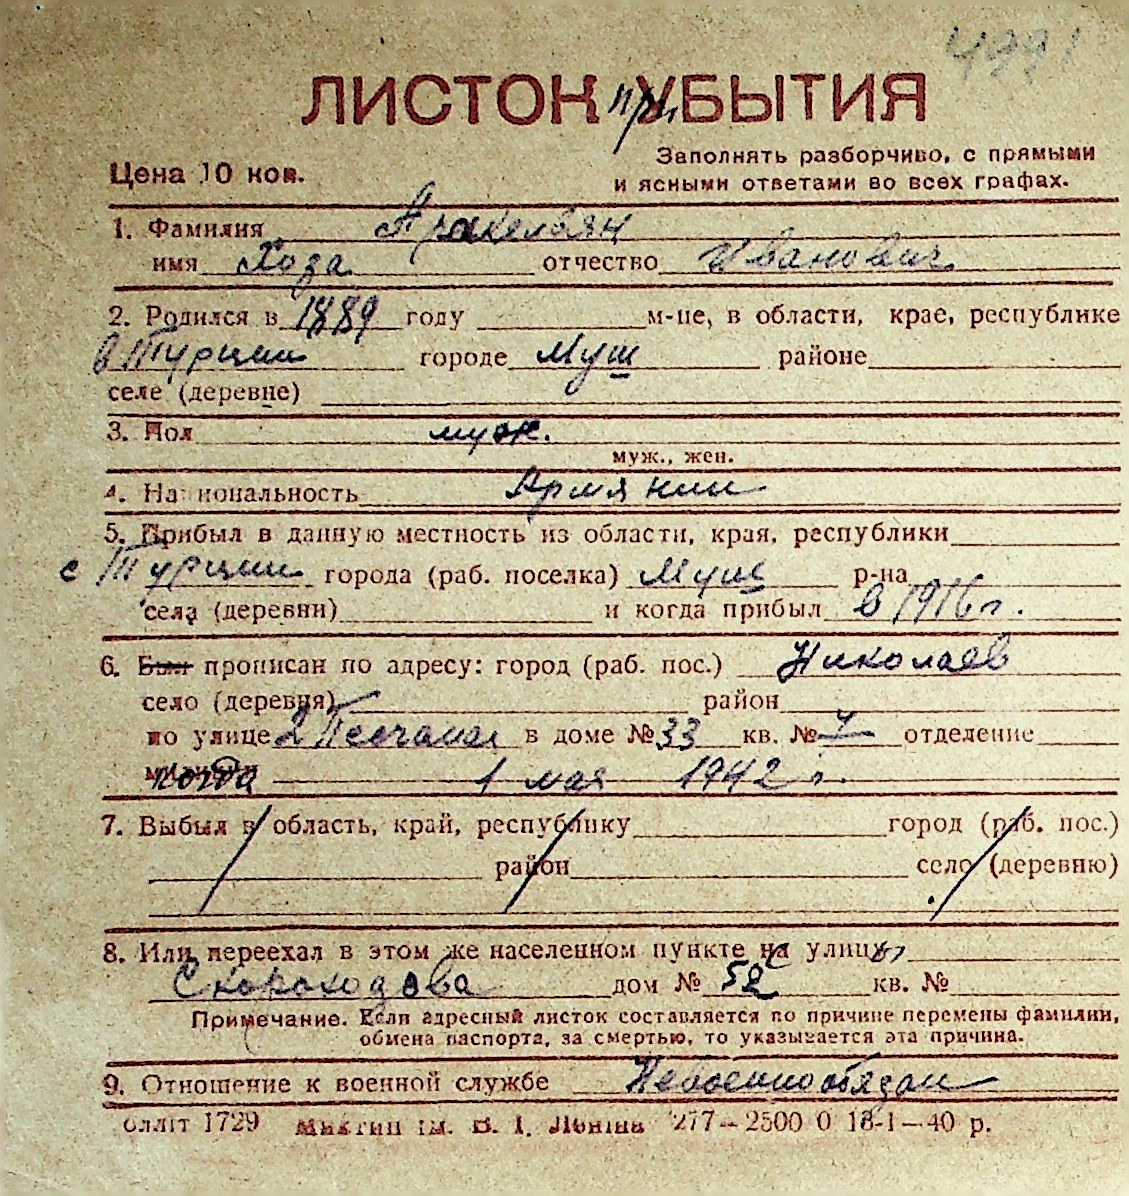 4991
ЛИСТОК при УБЫТИЯ
Цена 10 коп.
Заполнять разборчиво, с прямыми
и ясными ответами во всех графах.
1. Фамилия Аракельян
имя Хоза отчество Иванович
2. Родился в 1889 году м-це, в области, крае, республике
в Турции городе Муш районе
селе (деревне)
3. Пол муж.
муж., жен.
4. Национальность Армянин
5. Прибыл в данную местность из области, края, республики
с Турции города (раб. поселка) Муш р-на
села (деревни) и когда прибыл в 1916 г.
6. Был прописан по адресу: город (раб. пос.) Николаев
село (деревня) район
по улице 2 Песчаная в доме № 33 кв. № 7 отделение
когда 1 мая 1942 г.
7. Выбыл в область, край, республику город (раб. пос.)
район село (деревню)
8. Или переехал в этом же населенном пункте с улицы
Скороходова дом № 52 кв. №
Примечание. Если адресный листок составляется по причине перемены фамилии,
обмена паспорта, за смертью, то указывается эта причина.
9. Отношение к военной службе Невоеннообязан
Облліт 1729 ім. В. І. Леніна 277—2500 0 18-1—40 р.